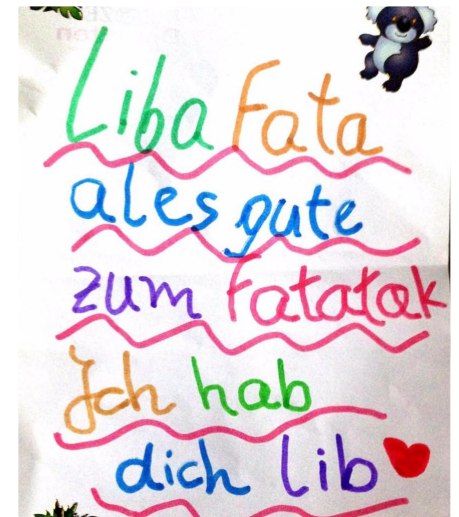 Liba Fata
ales gute
zum Fatatak
Ich hab
dich lib